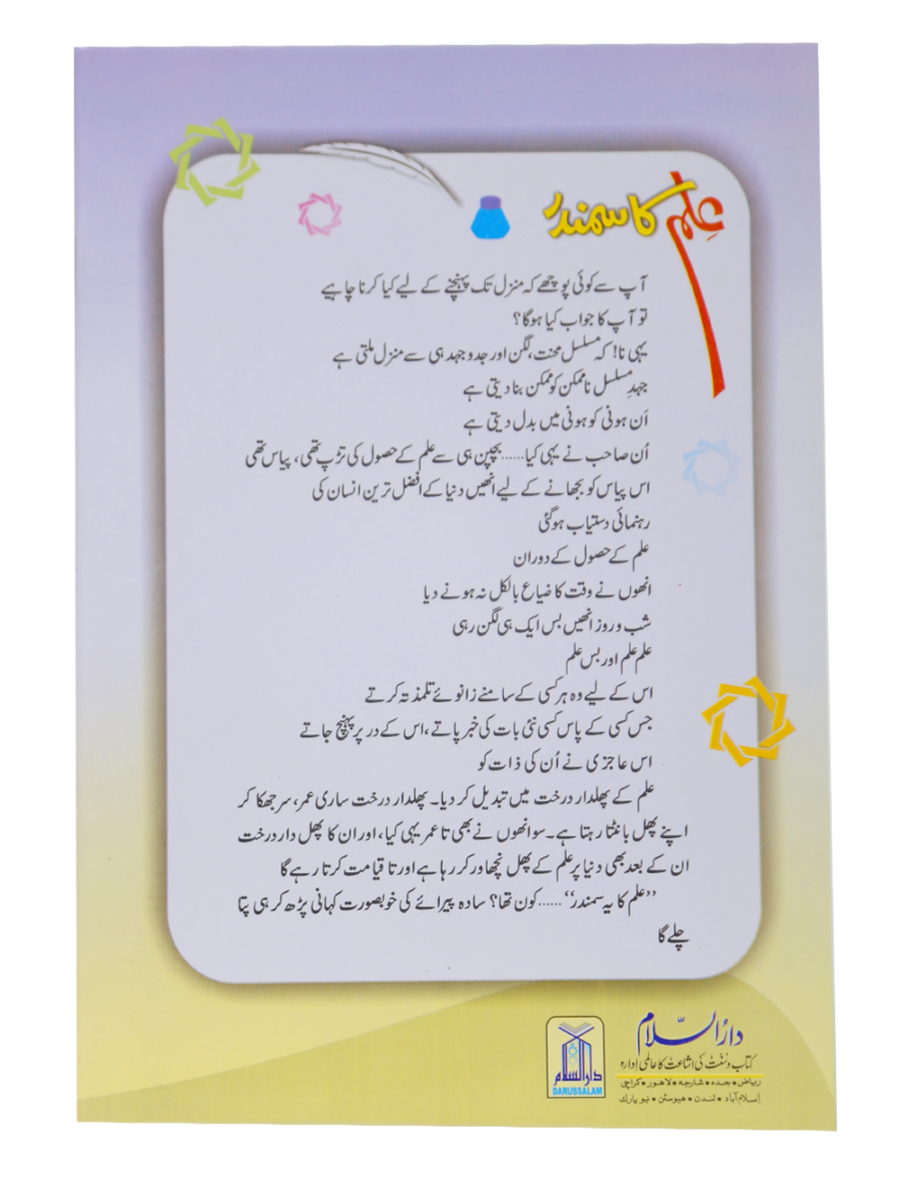 علم کا سمندر
آپ سے کوئی پوچھے کہ منزل تک پہنچنے کے لیے کیا کرنا چاہیے
تو آپ کا جواب کیا ہوگا؟
یہی نا! کہ مسلسل محنت، لگن اور جدوجہد ہی سے منزل ملتی ہے
جہدِ مسلسل ناممکن کو ممکن بنا دیتی ہے
اَن ہونی کو ہونی میں بدل دیتی ہے
اُن صاحب نے یہی کیا...... بچپن ہی سے علم کے حصول کی تڑپ تھی، پیاس تھی
اس پیاس کو بجھانے کے لیے انھیں دنیا کے افضل ترین انسان کی
رہنمائی دستیاب ہوگئی
علم کے حصول کے دوران
انھوں نے وقت کا ضیاع بالکل نہ ہونے دیا
شب و روز انھیں بس ایک ہی لگن رہی
علم علم اور بس علم
اس کے لیے وہ ہر کسی کے سامنے زانوئے تلمذ تہ کرتے
جس کسی کے پاس کسی نئی بات کی خبر پاتے، اس کے در پر پہنچ جاتے
اس عاجزی نے اُن کی ذات کو
علم کے پھلدار درخت میں تبدیل کر دیا۔ پھلدار درخت ساری عمر، سر جھکا کر
اپنے پھل بانٹتا رہتا ہے۔ سو انھوں نے بھی تا عمر یہی کیا، اور ان کا پھل دار درخت
ان کے بعد بھی دنیا پر علم کے پھل نچھاور کر رہا ہے اور تا قیامت کرتا رہے گا
’’علم کا یہ سمندر‘‘ ...... کون تھا؟ سادہ پیرائے کی خوبصورت کہانی پڑھ کر ہی پتا
چلے گا
دارالسلام
کتاب و سنت کی اشاعت کا عالمی ادارہ
ریاض • جدہ • شارجہ • لاہور • کراچی
اسلام آباد • لندن • ہیوسٹن • نیو یارک
دارالسلام
DARUSSALAM